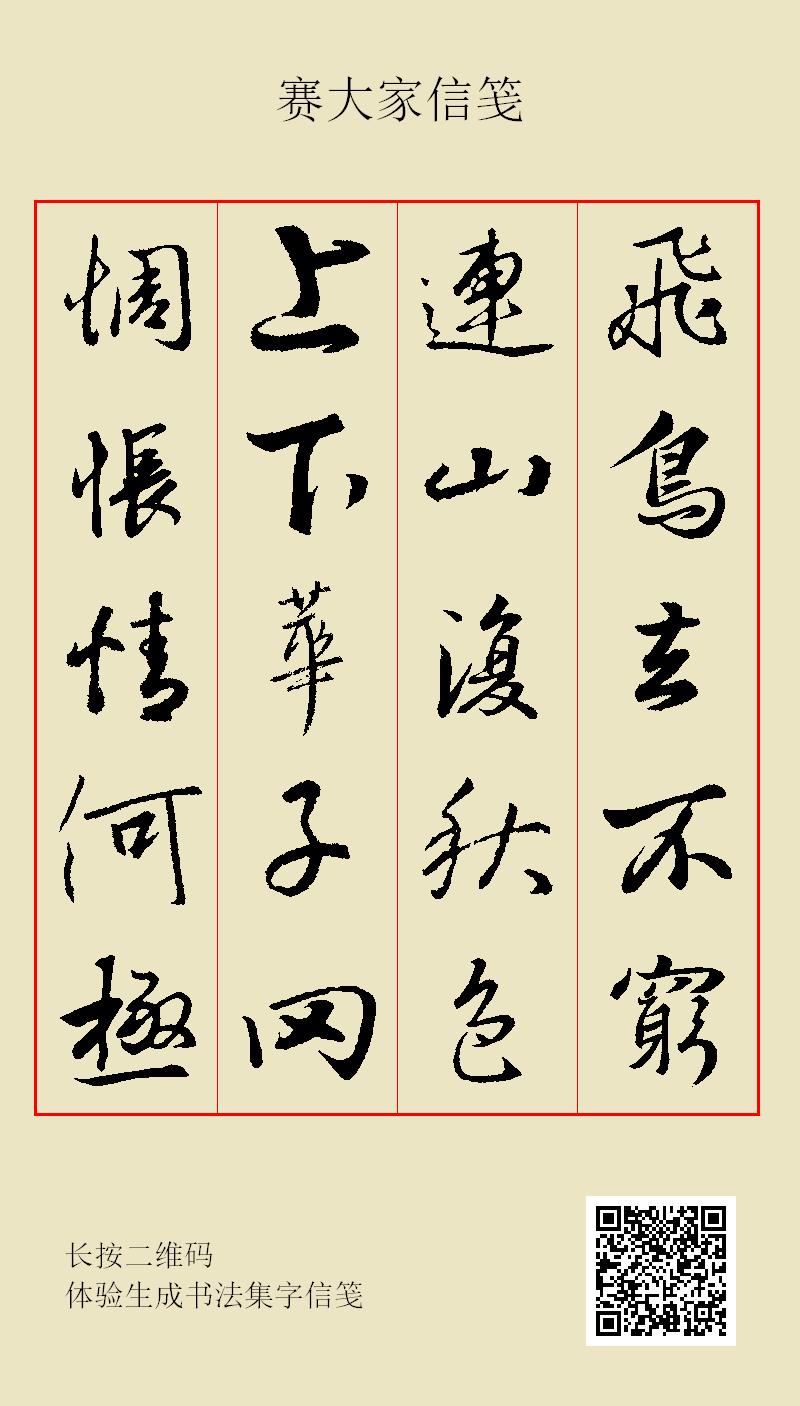 赛大家信笺
飛鳥去不窮
連山復秋色
上下華子冈
惆悵情何極
长按二维码
体验生成书法集字信笺